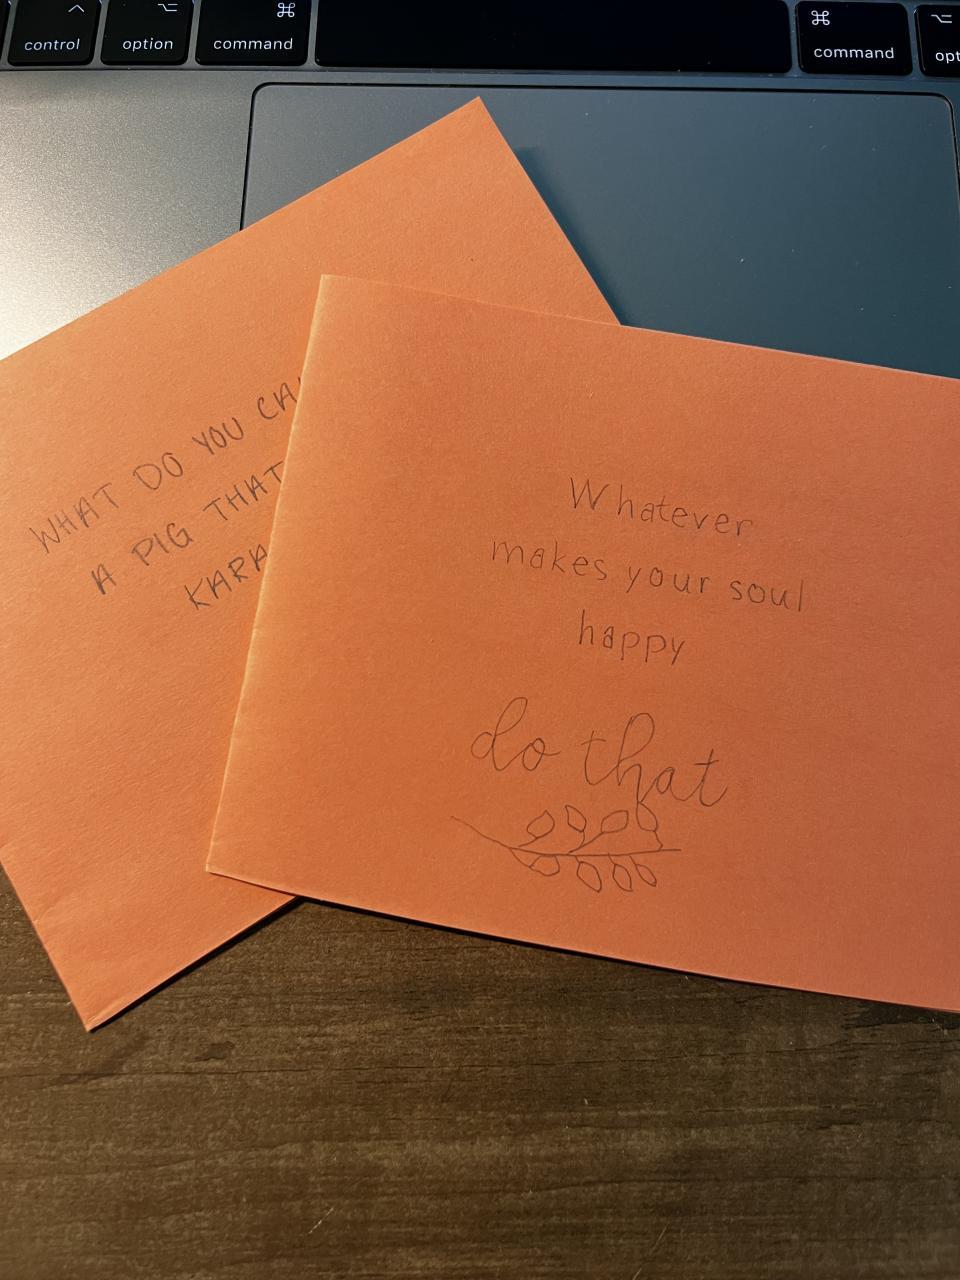 control
option
command
command
WHAT DO YOU
A PIG THAT
Whatever
makes your soul
happy
do that